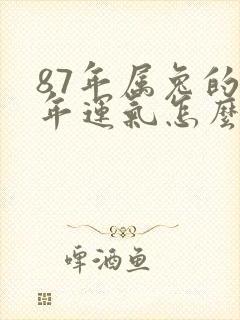 87年属兔的
年運氣怎麼
啤酒鱼